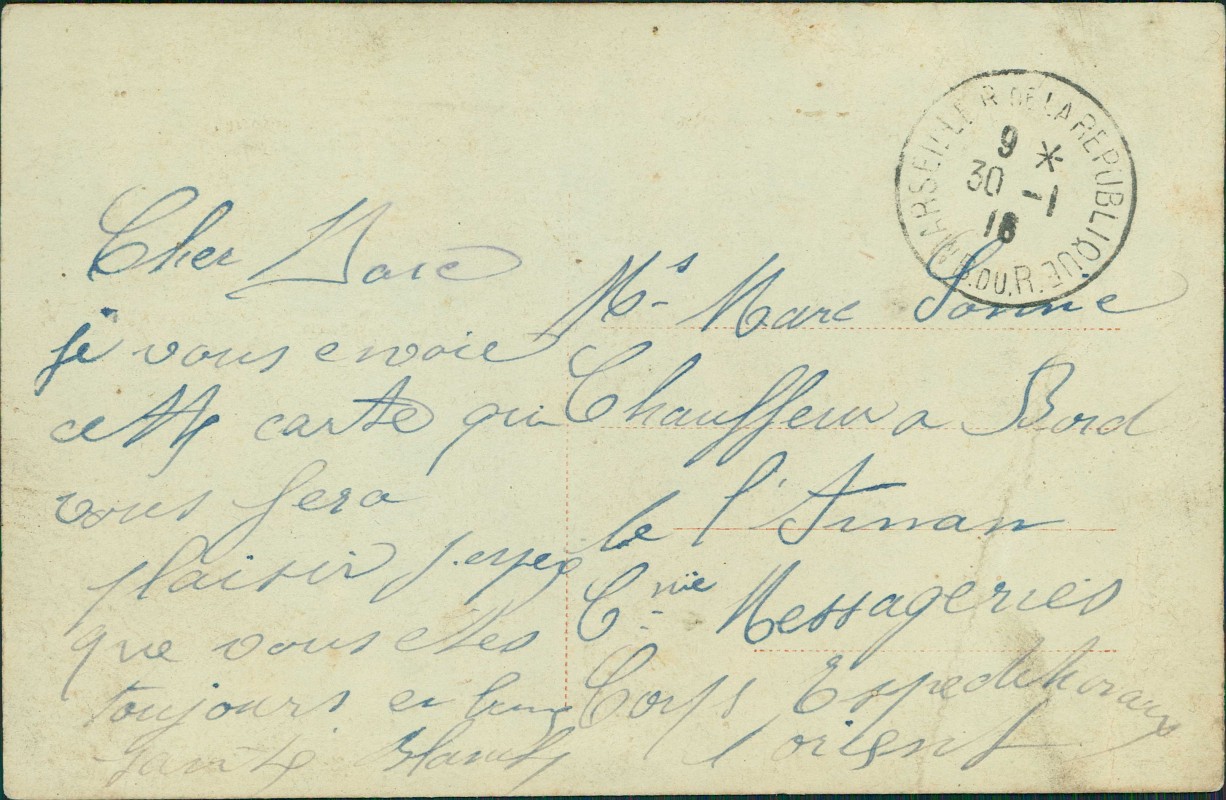 MARSEILLE R. DE LA REPUBLIQUE
9 *
30 -1
16
B. DU R.
Cher Marc
je vous envoie
cette carte qui
vous fera
plaisir j'espe
que vous etes
toujours en bune
santé Blanche
Mrs Marc
Chauffeur a Bord
le l'
Cnie Messageries
Corps Expeditionaux
l'orient